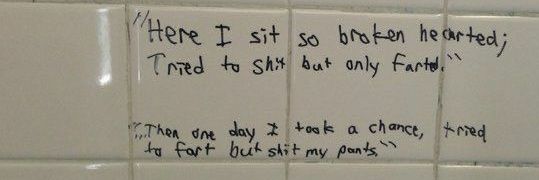 "Here I sit so broken hearted;
Tried to shit but only farted."
"Then one day I took a chance, tried
to fart but shit my pants."